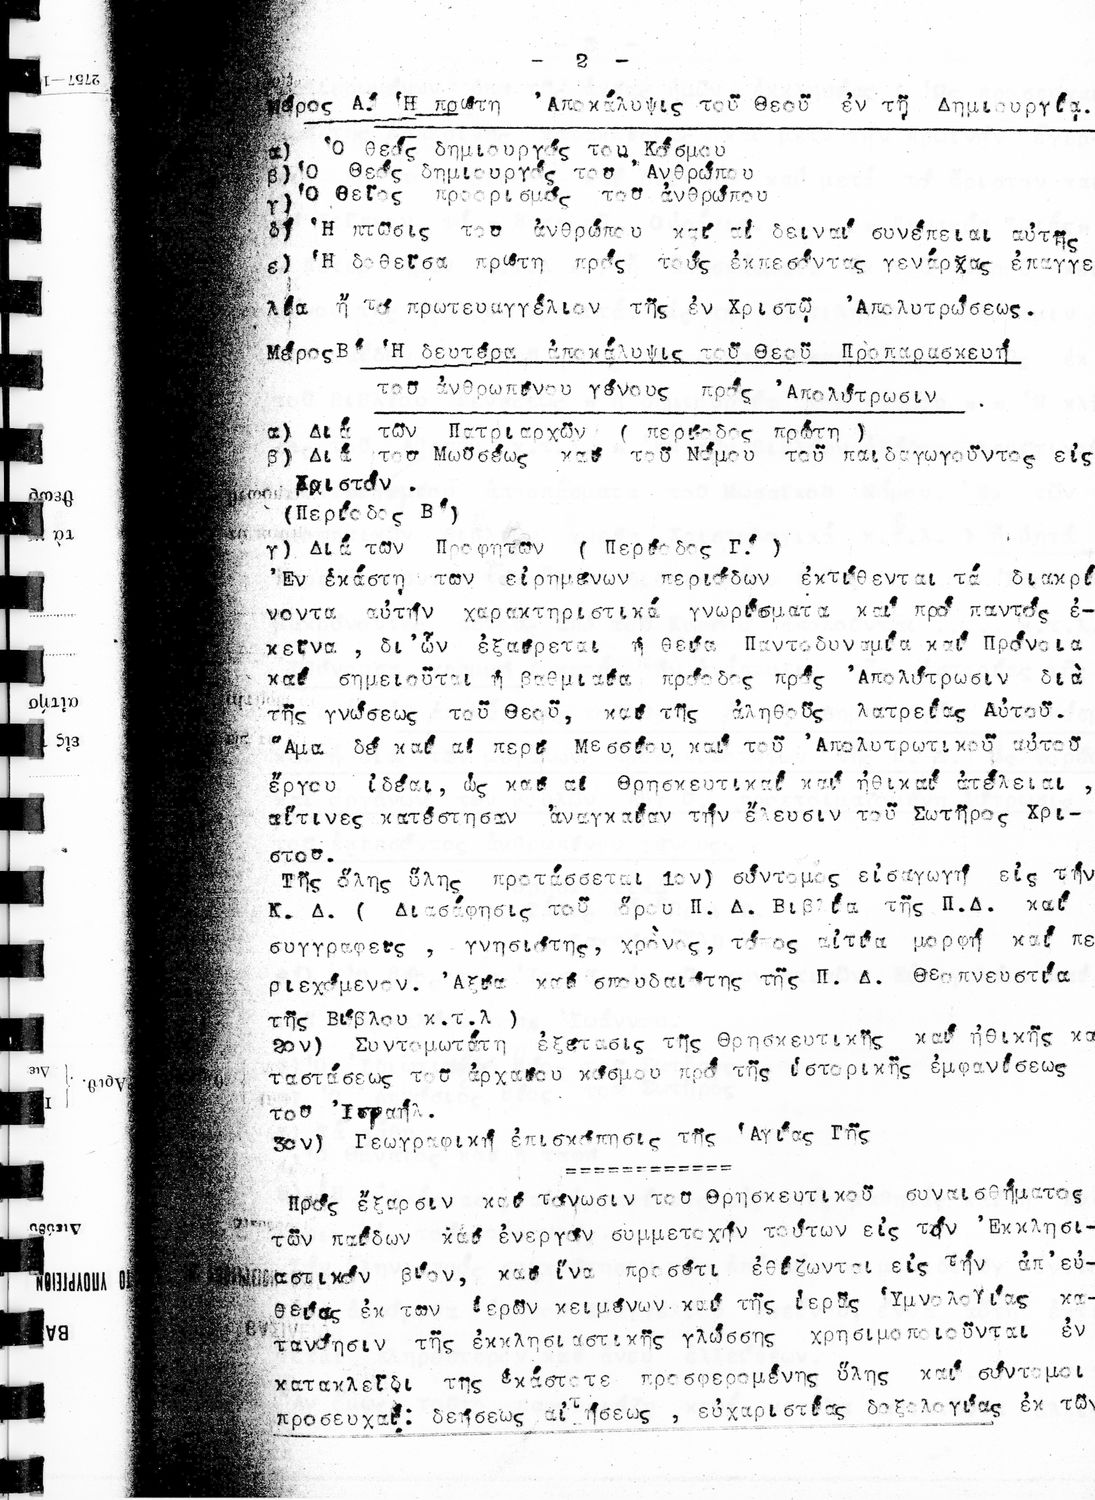 - 2 -
Μέρος Α.' Ἡ πρώτη Ἀποκάλυψις τοῦ Θεοῦ ἐν τῇ Δημιουργίᾳ.
α) Ὁ θεός δημιουργός του Κόσμου
β) Ὁ Θεός δημιουργός τοῦ Ἀνθρώπου
γ) Ὁ θεῖος προορισμός τοῦ ἀνθρώπου
δ) Ἡ πτῶσις τοῦ ἀνθρώπου καί αἱ δειναί συνέπειαι αὐτῆς
ε) Ἡ δοθεῖσα πρώτη πρός τούς ἐκπεσόντας γενάρχας ἐπαγγε
λία ἤ τό πρωτευαγγέλιον τῆς ἐν Χριστῷ Ἀπολυτρώσεως.
Μέρος Β' Ἡ δευτέρα ἀποκάλυψις τοῦ Θεοῦ Προπαρασκευή
τοῦ ἀνθρωπίνου γένους πρός Ἀπολύτρωσιν .
α) Διά τῶν Πατριαρχῶν ( περίοδος πρώτη )
β) Διά τοῦ Μωϋσέως καί τοῦ Νόμου τοῦ παιδαγωγοῦντος εἰς
Χριστόν .
(Περίοδος Β')
γ) Διά τῶν Προφητῶν ( Περίοδος Γ.' )
Ἐν ἑκάστῃ τῶν εἰρημένων περιόδων ἐκτίθενται τά διακρί
νοντα αὐτήν χαρακτηριστικά γνωρίσματα καί πρό παντός ἐ-
κεῖνα , δι'ὧν ἐξαίρεται ἡ θεία Παντοδυναμία καί Πρόνοια
καί σημειοῦται ἡ βαθμιαία πρόοδος πρός Ἀπολύτρωσιν διὰ
τῆς γνώσεως τοῦ Θεοῦ, καί τῆς ἀληθοῦς λατρείας Αὐτοῦ.
Ἅμα δέ καί αἱ περί Μεσσίου καί τοῦ Ἀπολυτρωτικοῦ αὐτοῦ
ἔργου ἰδέαι, ὡς καί αἱ θρησκευτικαί καί ἠθικαί ἀτέλειαι ,
αἵτινες κατέστησαν ἀναγκαίαν τήν ἔλευσιν τοῦ Σωτῆρος Χρι-
στοῦ.
Τῆς ὅλης ὕλης προτάσσεται 1ον) σύντομος εἰσαγωγή εἰς τήν
Κ. Δ. ( Διασάφησις τοῦ ὅρου Π. Δ. Βιβλία τῆς Π.Δ. καί
συγγραφεῖς , γνησιότης, χρὸνος, τόπος αἰτία μορφή καί πε
ριεχόμενον. Ἀξία καί σπουδαιότης τῆς Π. Δ. Θεοπνευστία
τῆς Βίβλου κ.τ.λ )
2ον) Συντομωτάτη ἐξέτασις τῆς θρησκευτικῆς καί ἠθικῆς κα
ταστάσεως τοῦ ἀρχαίου κόσμου πρό τῆς ἱστορικῆς ἐμφανίσεως
τοῦ Ἰσραήλ.
3ον) Γεωγραφική ἐπισκόπησις τῆς Ἁγίας Γῆς
============
Πρός ἔξαρσιν καί τόνωσιν τοῦ θρησκευτικοῦ συναισθήματος
τῶν παίδων καί ἐνεργόν συμμετοχήν τούτων εἰς τήν Ἐκκλησι-
αστικόν βίον, καί ἵνα προσέτι ἐθίζωνται εἰς τήν ἀπ'εὐ-
θείας ἐκ τῶν ἱερῶν κειμένων καί τῆς ἱερᾶς Ὑμνολογίας κα-
τανόησιν τῆς ἐκκλησιαστικῆς γλώσσης χρησιμοποιοῦνται ἐν
κατακλεῖδι τῆς ἑκάστοτε προσφερομένης ὕλης καί σύντομοι
προσευχαί: δεήσεως αἰτήσεως , εὐχαριστίας δοξολογίας ἐκ τῶν
2757-1
θεωρ
τὰ
αἰτήσ
εἰς
Ἀριθ.
Διε
Διεύθυ
ΤΟ ΥΠΟΥΡΓΕΙΟΝ
ΒΑ